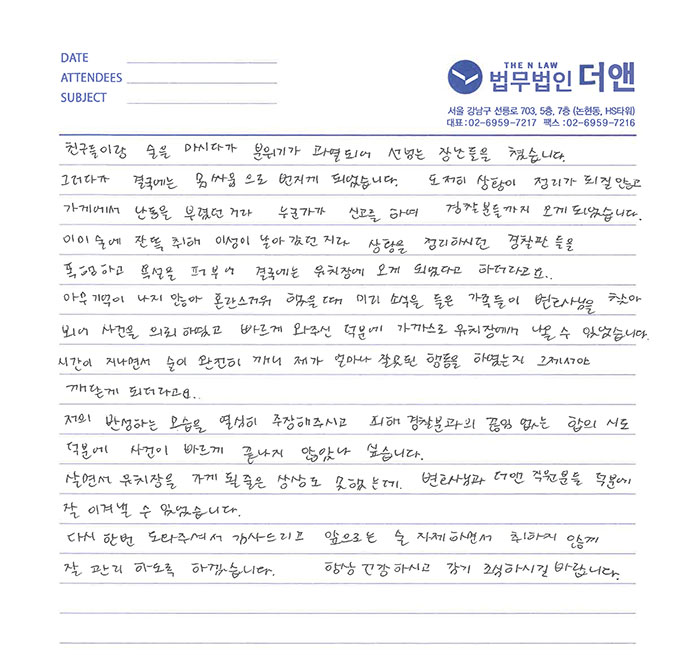 DATE
ATTENDEES
SUBJECT
THE N LAW
법무법인 더앤
서울 강남구 선릉로 703, 5층, 7층 (논현동, HS타워)
대표:02-6959-7217 팩스:02-6959-7216
친구들이랑 술을 마시다가 분위기가 과열되어 선넘는 장난들을 쳤습니다.
그러다가 결국에는 몸싸움으로 번지게 되었습니다. 도저히 상황이 정리가 되질 않고
가게에서 난동을 부렸던 거라 누군가가 신고를 하여 경찰분들까지 오게 되었습니다.
이미 술에 잔뜩 취해 이성이 날아갔던 지라 상황을 정리하시던 경찰관 들을
폭행하고 욕설을 퍼부어 결국에는 유치장에 오게 되었다고 하더라고요..
아무 기억이 나지 않아 혼란스러워 했을때 미리 소식을 들은 가족들이 변호사님을 찾아
뵈어 사건을 의뢰하였고 빠르게 와주신 덕분에 가까스로 유치장에서 나올 수 있었습니다.
시간이 지나면서 술이 완전히 깨니 제가 얼마나 잘못된 행동을 하였는지 그제서야
깨닫게 되더라고요..
저의 반성하는 모습을 열심히 주장해주시고 피해 경찰분과의 끊임 없는 합의 시도
덕분에 사건이 빠르게 끝나지 않았나 싶습니다.
살면서 유치장을 가게 될줄은 상상도 못했는데. 변호사님과 더앤 직원분들 덕분에
잘 이겨낼 수 있었습니다.
다시 한번 도와주셔서 감사드리고 앞으로는 술 자제하면서 취하지 않게
잘 관리 하도록 하겠습니다. 항상 건강하시고 감기 조심하시길 바랍니다.